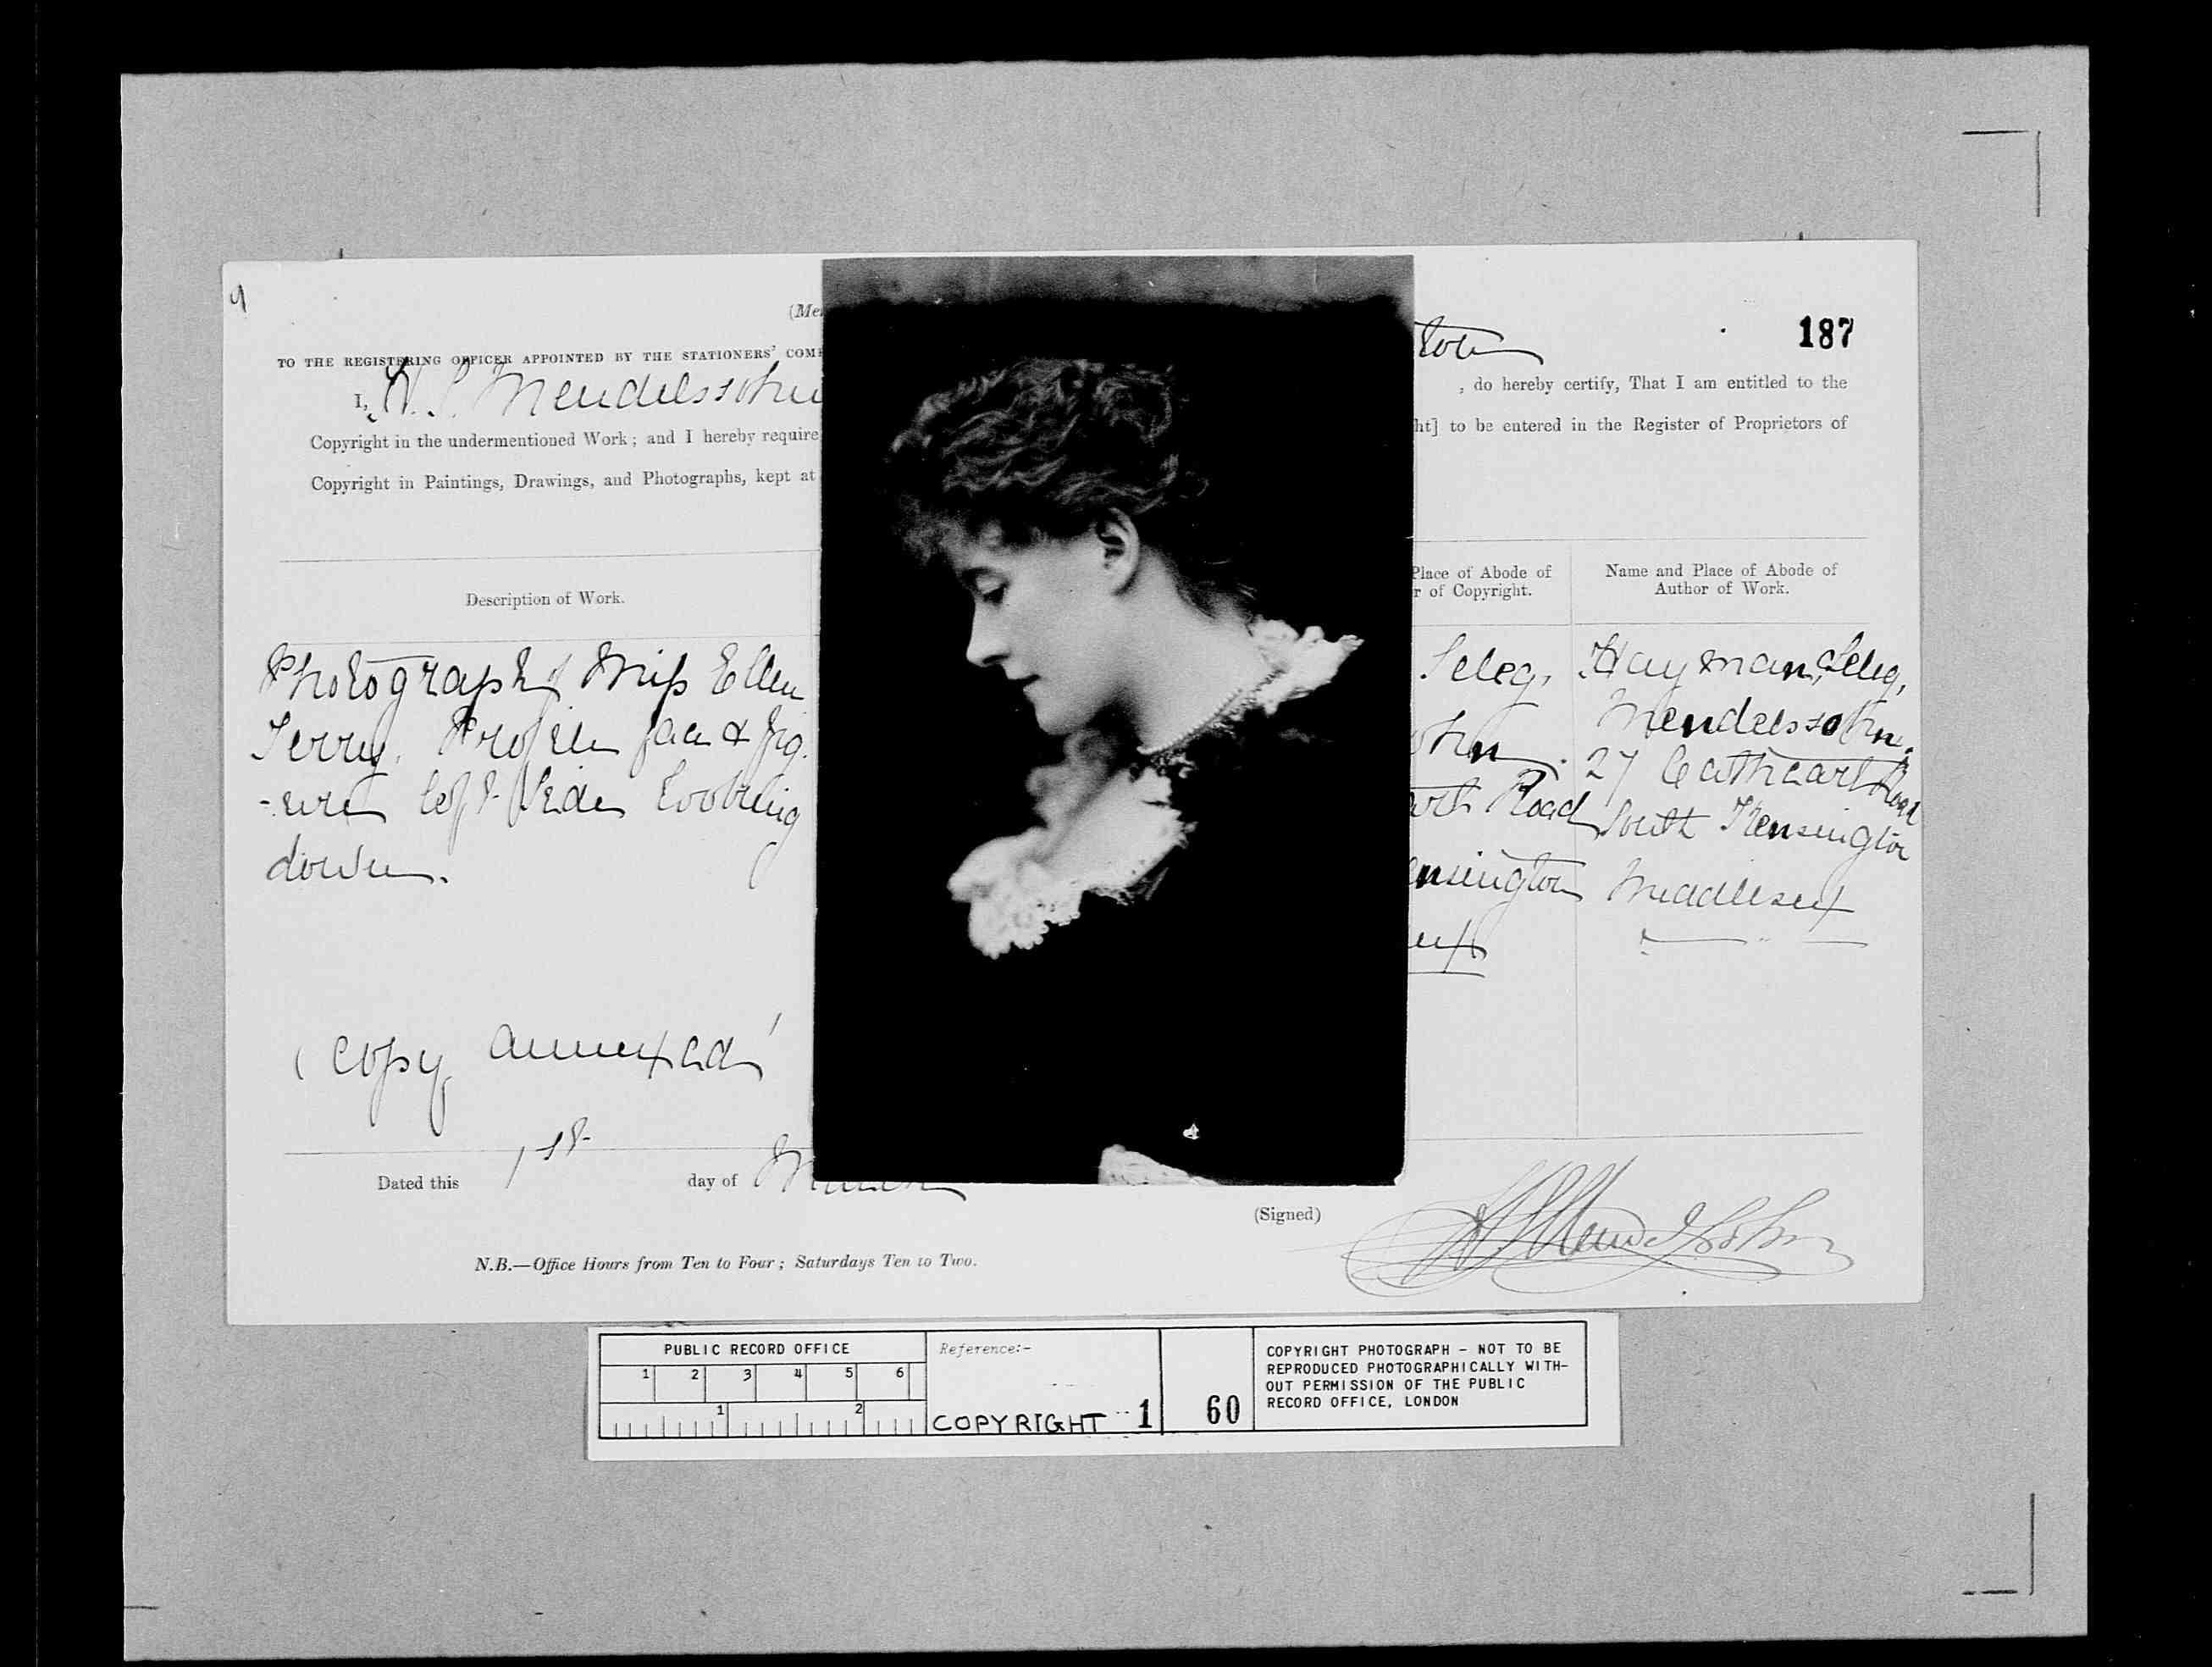 9
(Me
187
TO THE REGISTERING OFFICER APPOINTED BY THE STATIONERS' COM
I, H. S. Mendelssohn
, do hereby certify, That I am entitled to the
Copyright in the undermentioned Work; and I hereby require
ht] to be entered in the Register of Proprietors of
Copyright in Paintings, Drawings, and Photographs, kept at
Description of Work.
Place of Abode of
r of Copyright.
Name and Place of Abode of
Author of Work.
Photograph of Miss Ellen
Terry. Profile face & fig
-ure left side looking
down.
(copy annexed)
Seleg,
ohn.
Road
ensington
ex
Hayman, Seleg,
Mendelssohn.
27 Cathcart Road
South Kensington
Middlesex
Dated this 1st day of March
(Signed) H S Mendelssohn
N.B.—Office Hours from Ten to Four; Saturdays Ten to Two.
PUBLIC RECORD OFFICE
1 2 3 4 5 6
1 2
Reference:-
COPYRIGHT 1
60
COPYRIGHT PHOTOGRAPH - NOT TO BE
REPRODUCED PHOTOGRAPHICALLY WITH-
OUT PERMISSION OF THE PUBLIC
RECORD OFFICE, LONDON